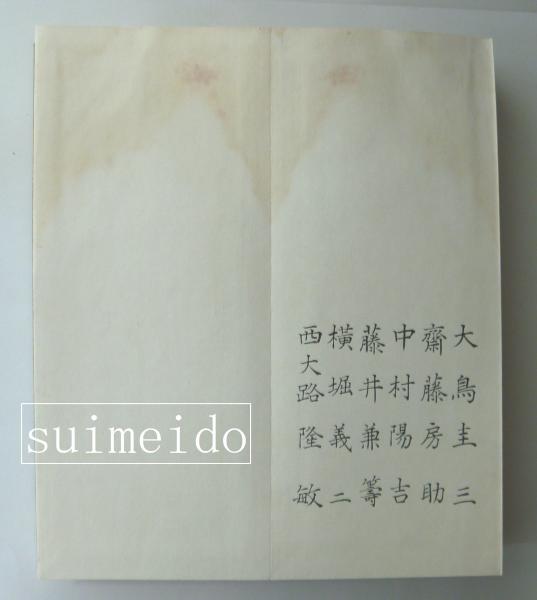 大鳥圭三
齋藤房助
中村陽吉
藤井兼籌
橫堀義二
西大路隆敏
suimeido